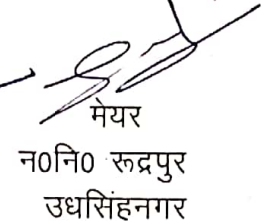 मेयर
न0नि0 रूद्रपुर
उधसिंहनगर